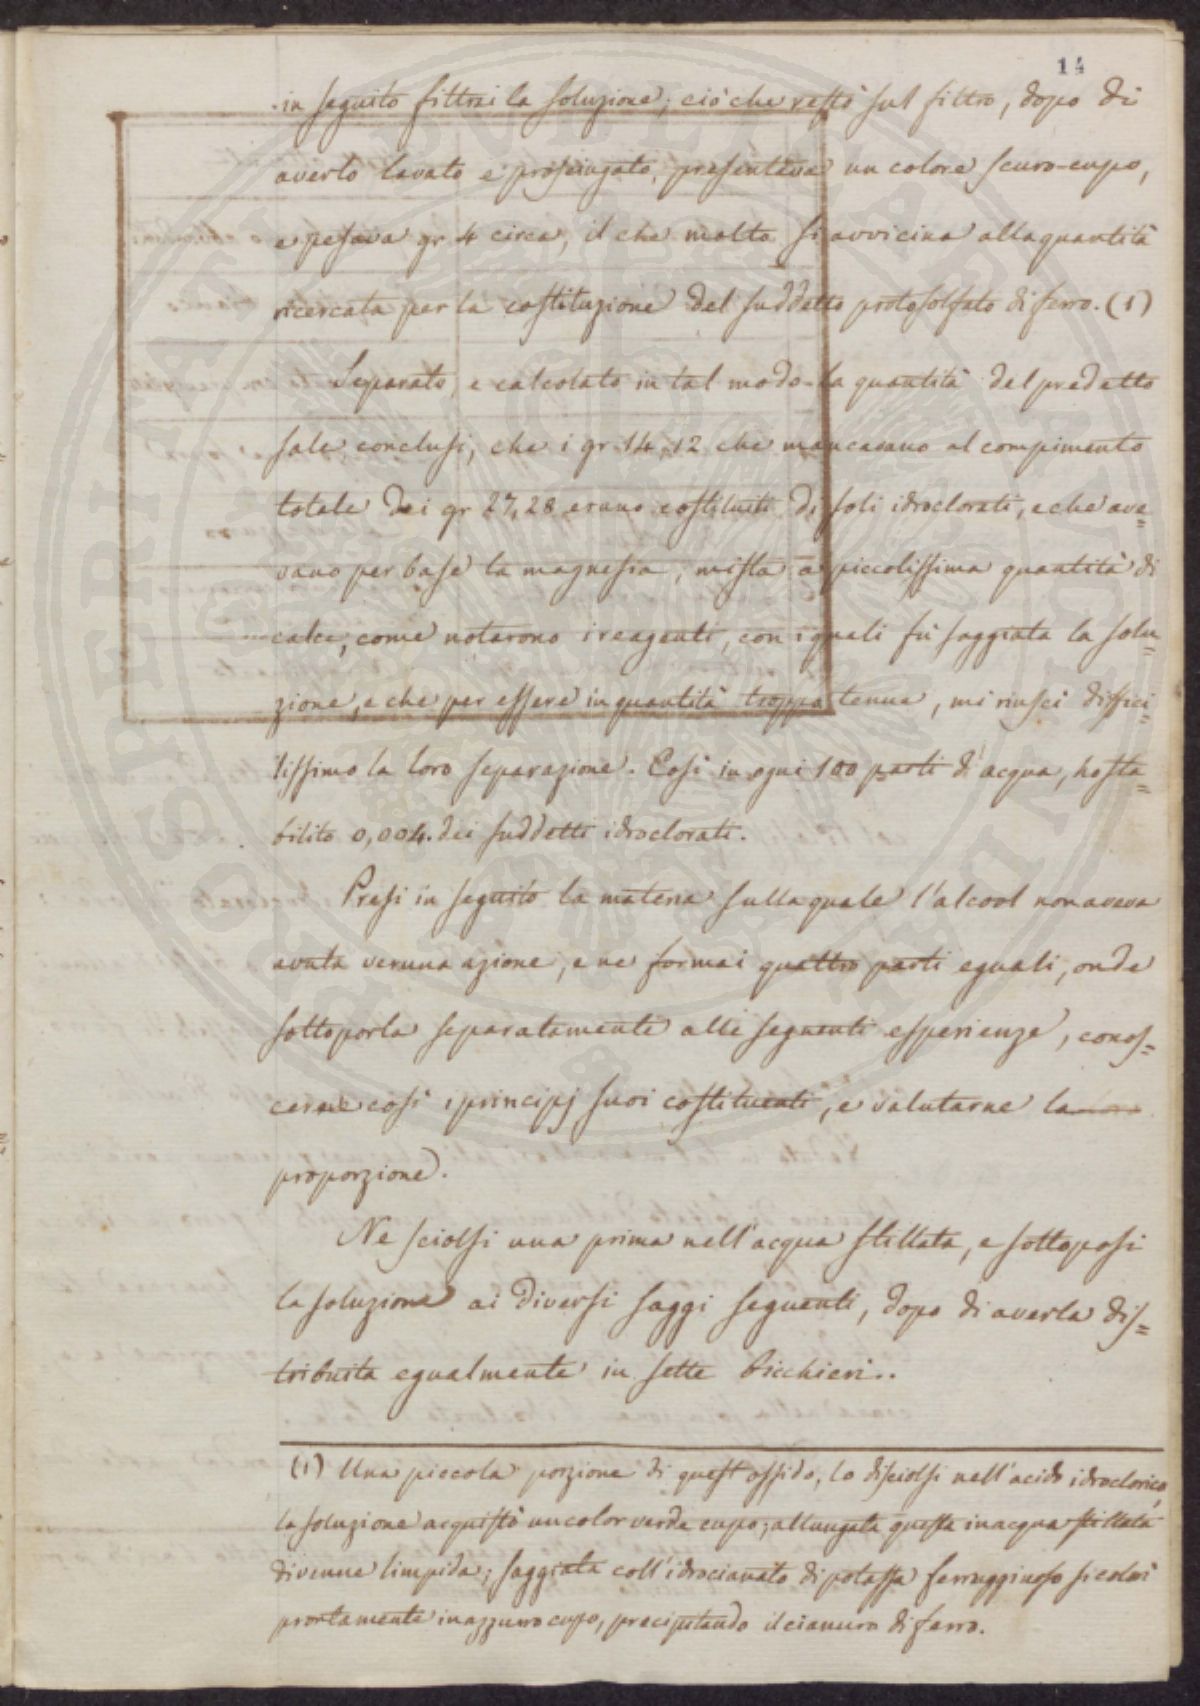 14
in seguito filtrai la soluzione; ciò che restò sul filtro, dopo di
averlo lavato e prosciugato, presentava un colore scuro-cupo,
e pesava gr 4 circa, il che molto si avvicina alla quantità
ricercata per la costituzione del suddetto protosolfato di ferro. (1)
Separato, e calcolato in tal modo la quantità del predetto
sale conclusi, che i gr 14,12 che mancavano al compimento
totale dei gr 27,28 erano costituiti di soli idroclorati, e che ave=
vano per base la magnesia, mista a piccolissima quantità di
calce, come notarono i reagenti, con i quali fù saggiata la solu=
zione, e che per essere in quantità troppo tenue, mi riuscì diffici=
lissimo la loro separazione. Così in ogni 100 parti d'acqua, ho sta=
bilito 0,004. dei suddetti idroclorati.
Presi in seguito la materia sulla quale l'alcool non aveva
avuta veruna azione, e ne formai quattro parti eguali, onde
sottoporla separatamente alle seguenti esperienze, conos=
cerne così i principj suoi costituenti, e valutarne la
proporzione.
Ne sciolsi una prima nell'acqua stillata, e sottoposi
la soluzione ai diversi saggi seguenti, dopo di averla dis=
tribuita egualmente in sette bicchieri..
(1) Una piccola porzione di quest'ossido, lo disciolsi nell'acido idroclorico,
la soluzione acquistò un color verde cupo; allungata questa in acqua stillata
divenne limpida; saggiata coll'idrocianato di potassa ferrugginoso si colorì
prontamente in azzurro cupo, precipitando il cianuro di ferro.